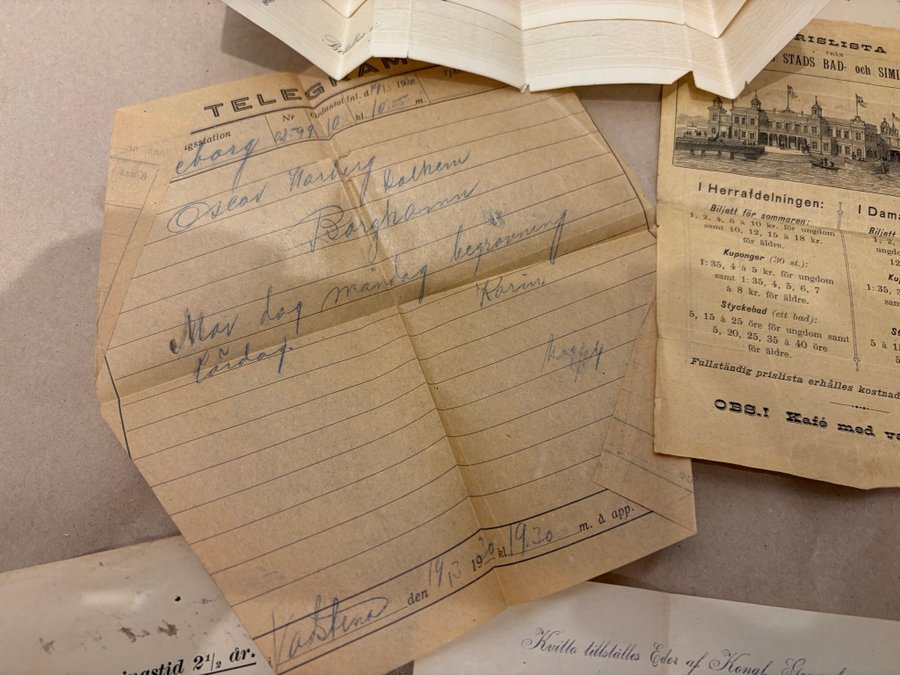 TELEGRAM
Nr
Ordantal
Inl. d. 19/3 1930
gsstation
eborg
10
kl.
m.
Oscar
Borghamn
Mor dog måndag begravning
lördag.
Karin
Vadstena den 19/3 1930 kl. 19.30 m. å app.
PRISLISTA
FRÅN
STADS BAD- och SIM
I Herrafdelningen:
Biljett för sommaren:
1, 2, 4, 6 à 10 kr. för ungdom
samt 10, 12, 15 à 18 kr.
för äldre.
Kuponger (30 st.):
1: 35, 4 à 5 kr. för ungdom
samt 1: 35, 4, 5, 6, 7
à 8 kr. för äldre.
Styckebad (ett bad):
5, 15 à 25 öre för ungdom samt
5, 20, 25, 35 à 40 öre
för äldre.
I Dama
Biljett
1, 2,
ungdo
12
Kup
1: 35,
ungdo
St
5 à 1
5
Fullständig prislista erhålles kostnad
OBS.! Kafé med v
ngstid 2½ år.
Kvitto tillställes Eder af Kongl.